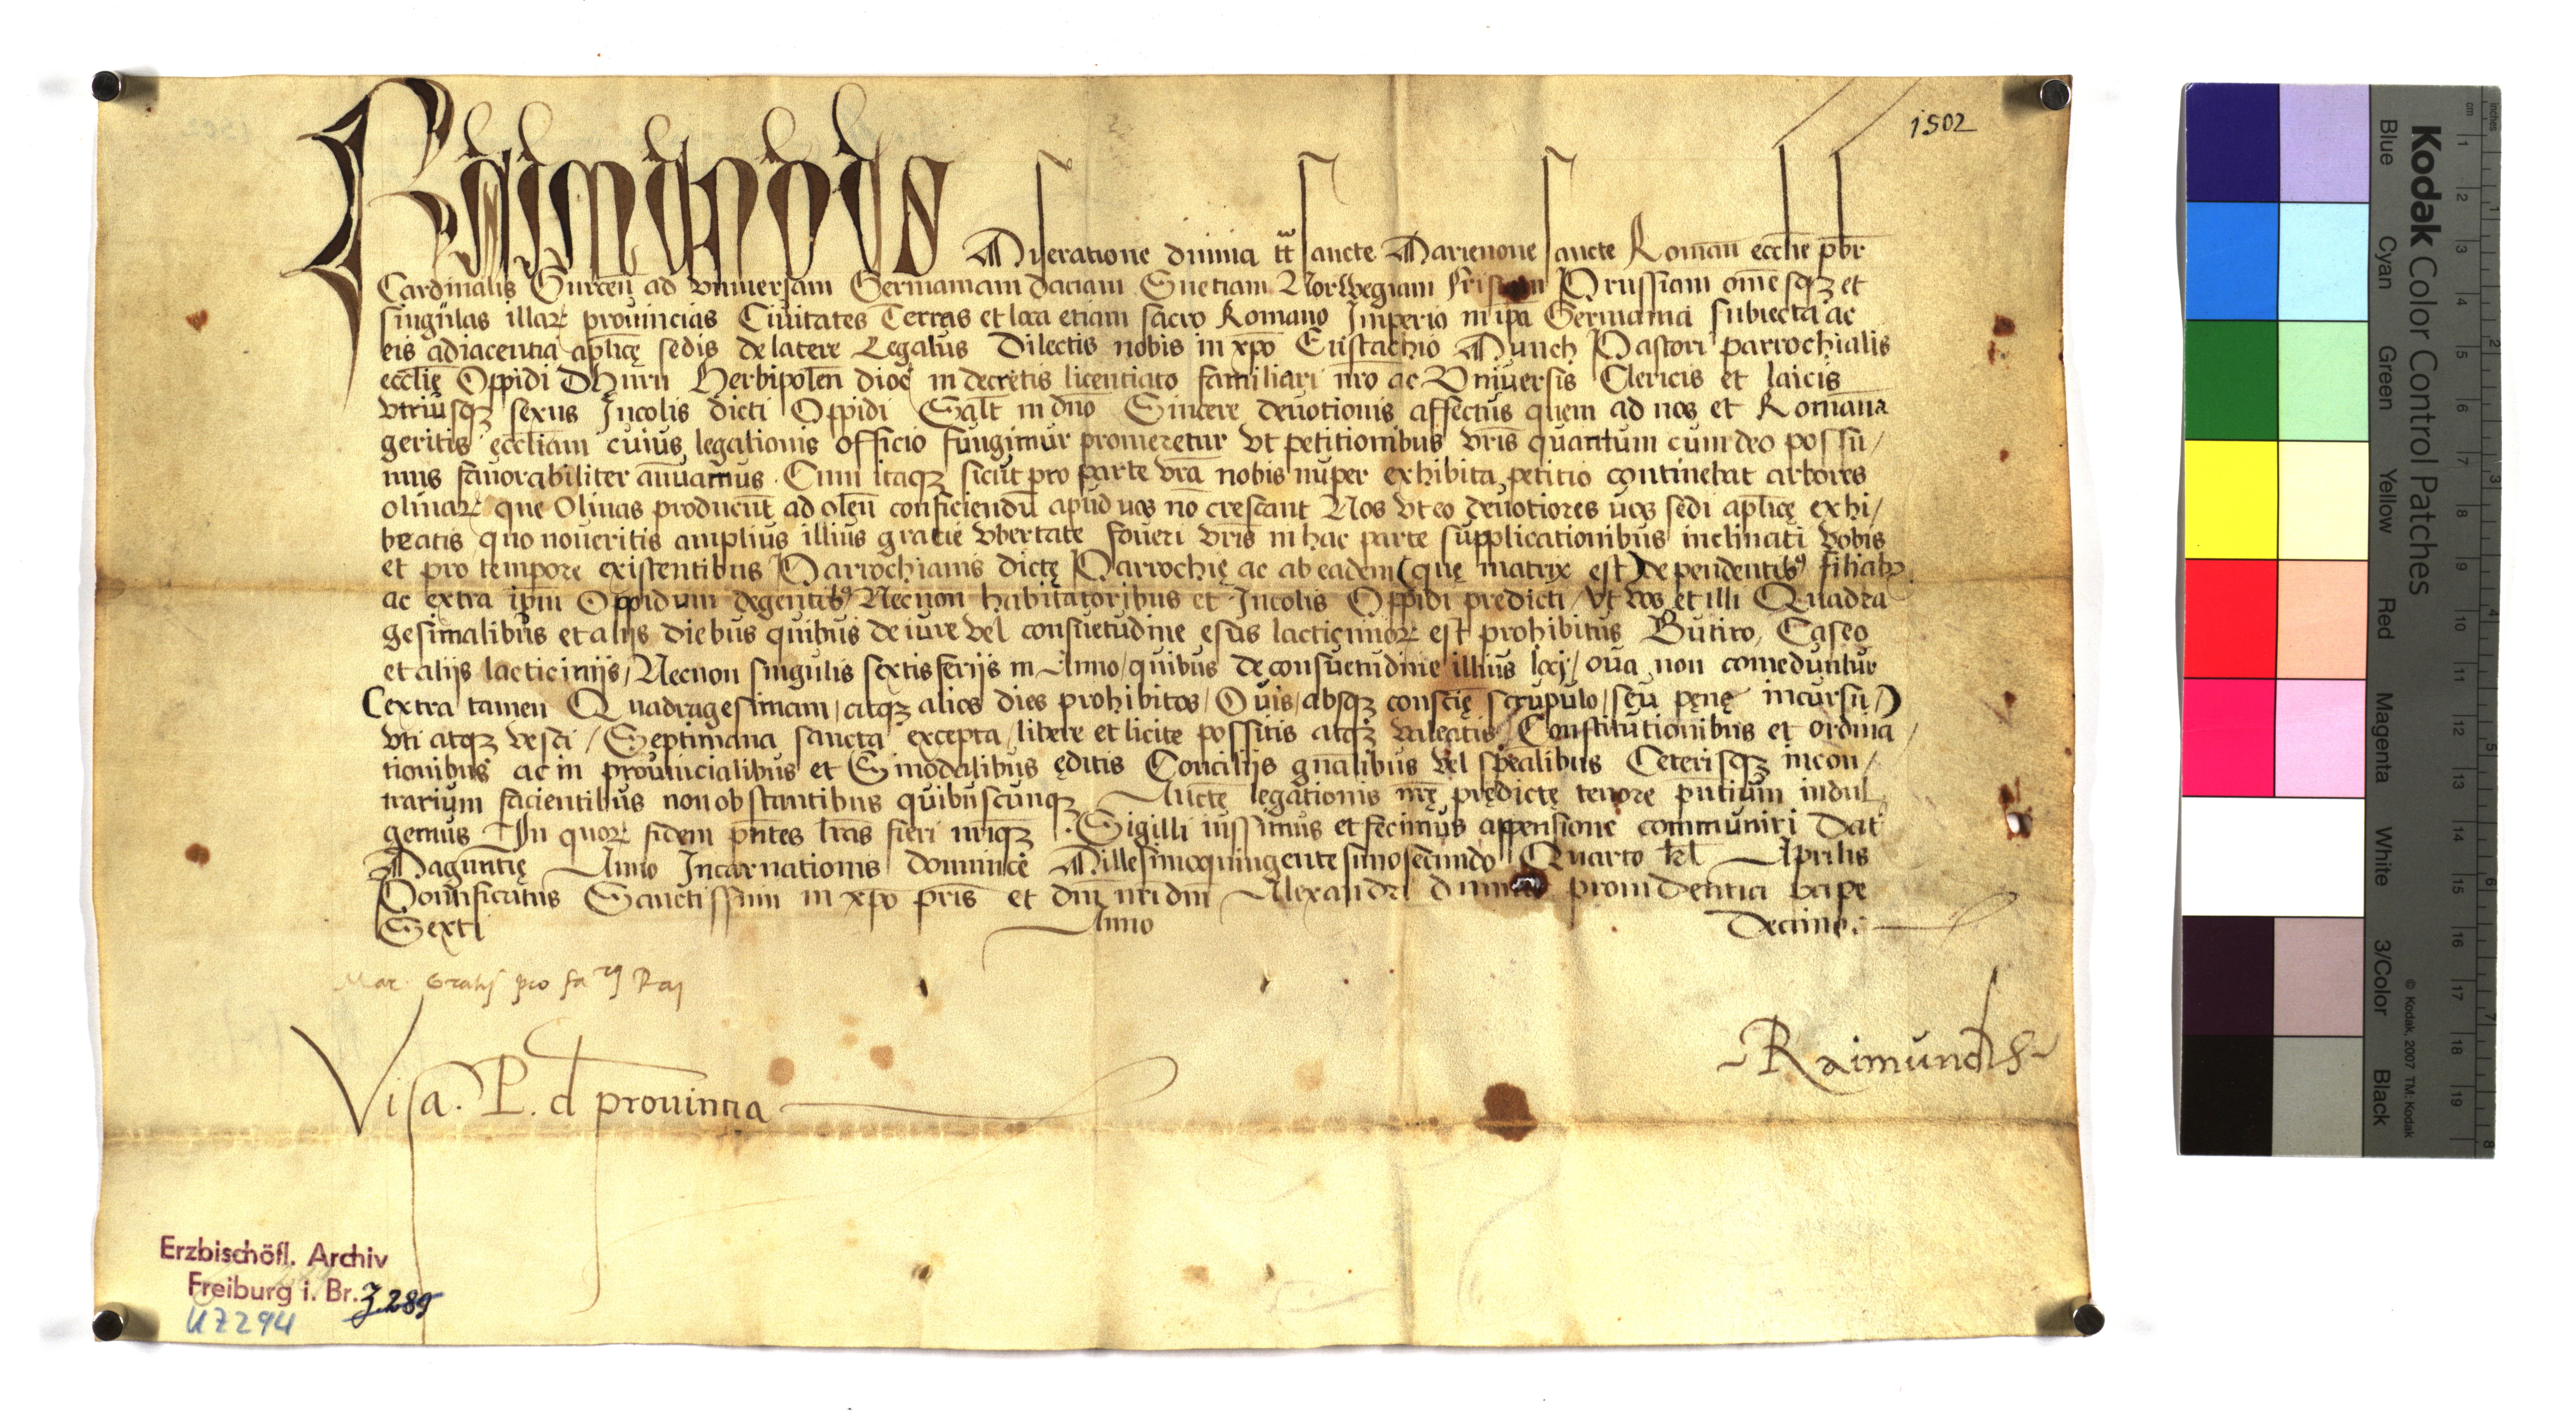 Raimundus Miseratione diuina tt̄ Sancte Marienoue Sancte Romān ecclīe p̄br̄
1502
Cardinalis Gurceñ ad vniuersam Germaniam daciam Suetiam Norwegiam Prussiam om̄esqꝫ et
singulas illarꝝ prouincias Ciuitates Terras et loca etiam sacro Romano Imperio in ip̄a Germania subiecta ac
eis adiacentia ap̄licę sedis de latere Legatus Dilectis nobis in xp̄o Eustachio Munch Pastori parrochialis
ecclīę Oppidi Dhurn Herbipoleñ dioc̄ in decretis licentiato familiari nr̄o ac Vniuersis Clericis et laicis
vtriusqꝫ sexus Incolis dicti Oppidi Salt̄ in dn̄o Sincere deuotionis affectus quem ad nos et Romāna
geritis eccliam cuius legationis officio fungimur promeretur vt petitionibus vr̄is quantum cum deo possu/
mus fauorabiliter ānuamus. Cum itaqꝫ sicut pro parte vr̄a nobis nuper exhibita petitio continebat arbores
oliuarꝝ que Oliuas producunt̄ ad oleū conficiendū apud uos nō crescant Nos vt eo deuotiores uos sedi ap̄licę exhi/
beatis quo noueritis amplius illius gratie vbertate foueri vr̄is in hac parte supplicationibus inclinati vobis
et pro tempore existentibus Parrochianis dictę Parrochię ac ab eadem (quę matrix est) dependentibꝯ filiabꝫ
ac extra ip̄m Oppidum degentibꝯ Necnon habitatoribus et Incolis Oppidi predicti/ vt vos et illi Quadra
gesimalibus et alijs diebus quibus de iure vel consuetudine esus lacticiniorꝝ est prohibitus Butiro, Caseo
et alijs lacticinijs/ Necnon singulis sextis ferijs in Anno/ quibus de consuetudine illius loci/ oua non comeduntur
(extra tamen Quadragesimam/ atqꝫ alios dies prohibitos/ Ouis/ absqꝫ consciē scrupulo/ seu pęnę incursu/)
vti atqꝫ vesci/ Septimana sancta excepta/ libere et licite possitis atqꝫ valeatis/ Constitutionibus et ordina/
tionibus ac in prouincialibus et Sinodalibus ęditis Concilijs gn̄alibus vel sp̄ealibus Ceterisqꝫ in con/
trarium facientibus non obstantibus quibuscunqꝫ Aucte legationis nr̄ę prędictę tenore pn̄tium indul
gemus In quorꝝ fidem pn̄tes lr̄as fieri nr̄iqꝫ Sigilli iussimus et fecimus appensione communiri Dat̄
Maguntię Anno Incarnationis dominicę Millesimoquingentesimosecundo Quarto kl̄ Aprilis
Pontificatus Sanctissimi in xp̄o pr̄is et dn̄i nr̄i dn̄i Alexandri diuina prouidentia pape
Sexti Anno Decimo.
Raimundus
Visa. P. d prouintia
Erzbischöfl. Archiv
Freiburg i. Br. J 289
UZ294
Kodak Color Control Patches
Blue Cyan Green Yellow Red Magenta White 3/Color Black
© Kodak, 2007 TM: Kodak
inches 1 2 3 4 5 6 7 8
cm 1 2 3 4 5 6 7 8 9 10 11 12 13 14 15 16 17 18 19